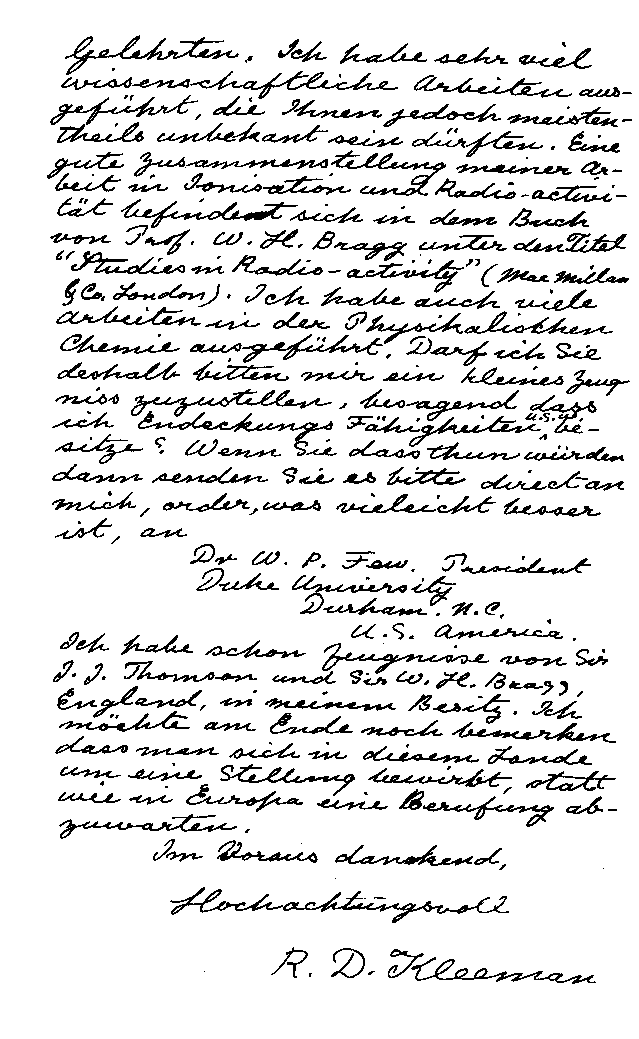 Gelehrten. Ich habe sehr viel
wissenschaftliche Arbeiten aus-
geführt, die Ihnen jedoch meisten-
theils unbekant sein dürften. Eine
gute Zusammenstellung meiner Ar-
beit in Ionisation und Radio-activi-
tät befindent sich in dem Buch
von Prof. W. H. Bragg unter den Titel
"Studies in Radio-activity" (Mac Millan
& Co. London). Ich habe auch viele
Arbeiten in der Physikalischen
Chemie ausgeführt. Darf ich Sie
deshalb bitten mir ein kleines Zeug
niss zuzustellen, besagend dass
ich Endeckungs Fähigkeiten u.s.w. be-
sitze? Wenn Sie dass thun würden
dann senden Sie es bitte direct an
mich, order, was vieleicht besser
ist, an
Dr W. P. Few. President
Duke University
Durham. N.C.
U.S. America.
Ich habe schon Zeugnisse von Sir
J. J. Thomson und Sir W. H. Bragg,
England, in meinem Besitz. Ich
möchte am Ende noch bemerken
dass man sich in diesem Lande
um eine Stellung bewirbt, statt
wie in Europa eine Berufung ab-
zuwarten.
Im Voraus dankend,
Hochachtungsvoll
R. D. Kleeman